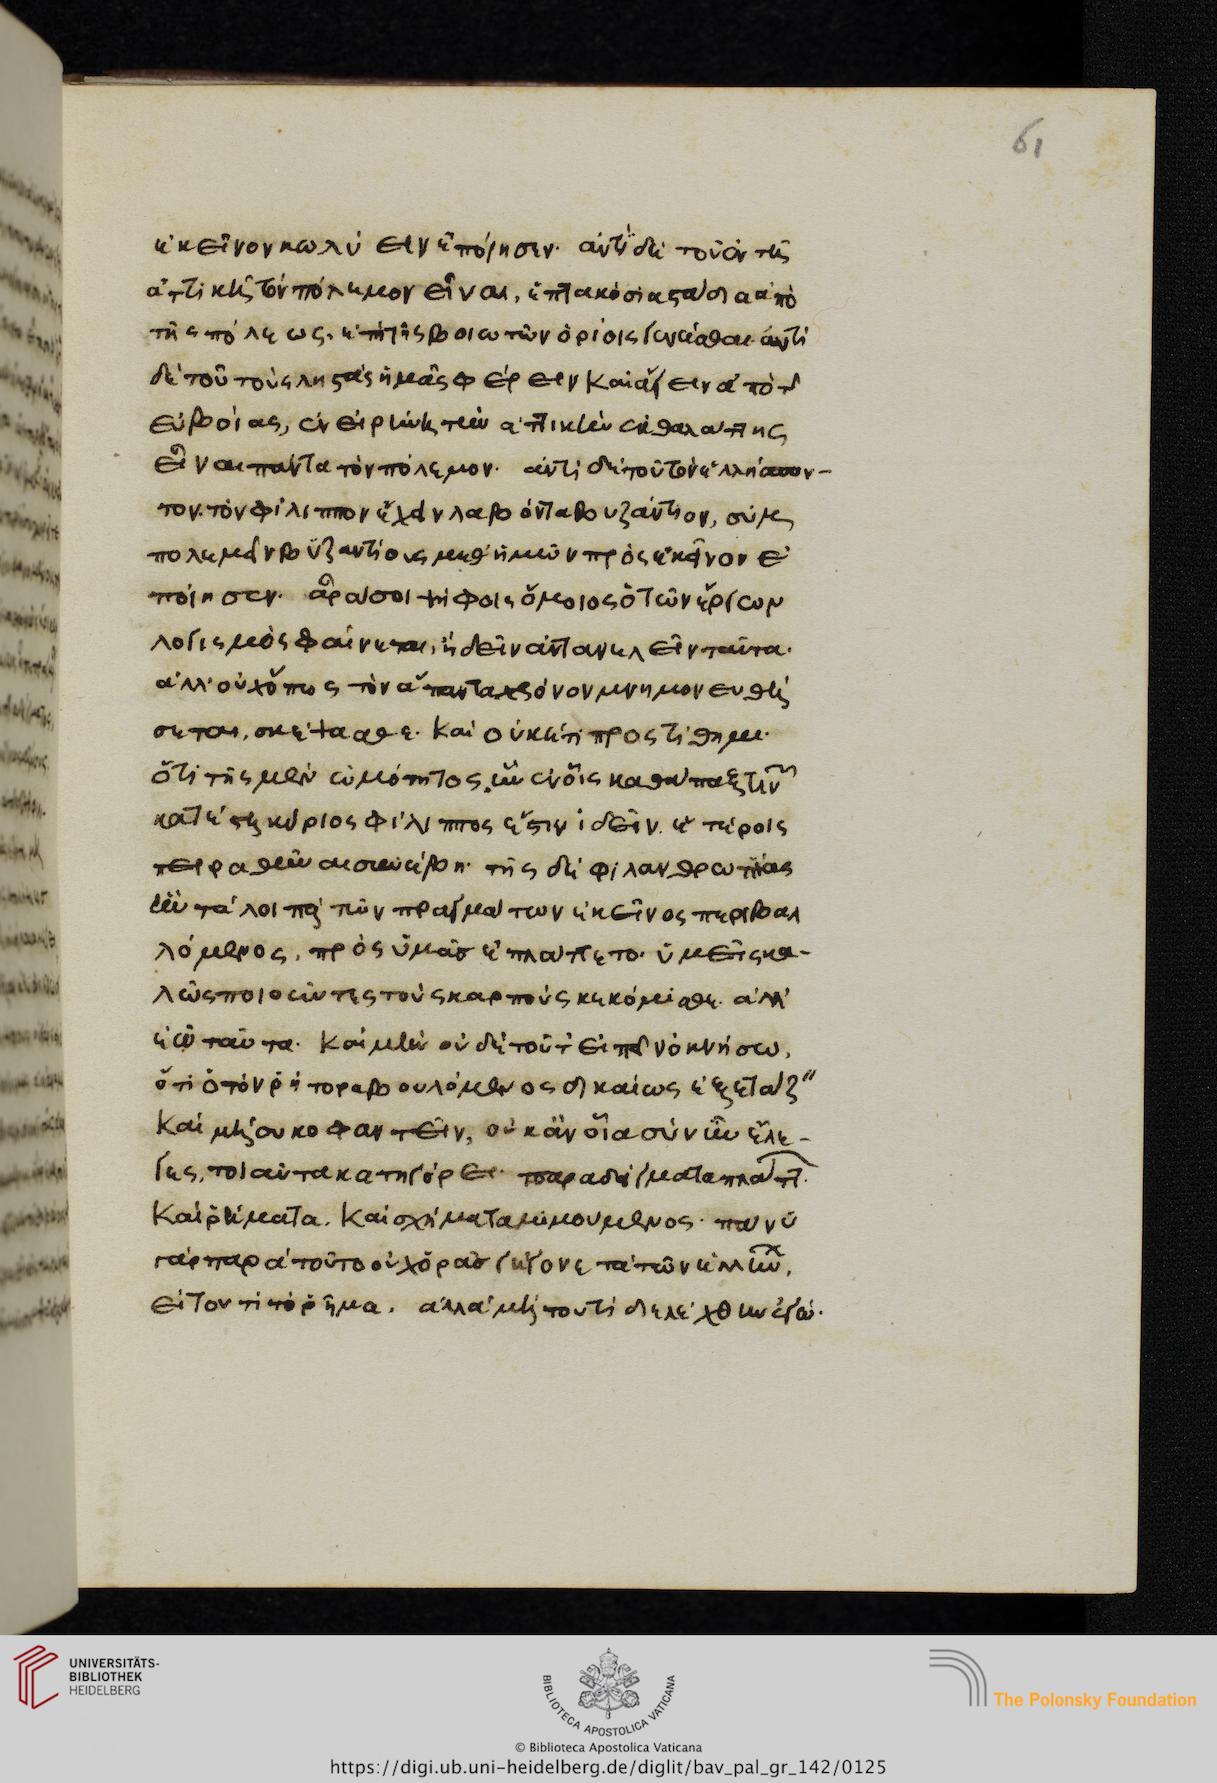 61
ἐκεῖνον κωλύειν ἐποίησεν. ἀντὶ δὲ τοῦ ἐν τῆ
ἀττικῆ τὸν πόλεμον εἶναι, ἑπτακόσια στάδια ἀπὸ
τῆς πόλεως, ἐπὶ τοῖς βοιωτῶν ὁρίοις γενέσθαι. ἀντὶ
δὲ τοῦ τοὺς ληστὰς ἡμᾶς φέρειν καὶ ἄγειν ἀπὸ τ
εὐβοίας, ἐν εἰρήνη τὴν ἀττικὴν ἐκ θαλάττης
εἶναι πάντα τὸν πόλεμον. ἀντὶ δὲ τοῦ τὸν ἑλλήσπον-
τον τὸν φίλιππον ἔχειν λαβόντα βυζάντιον, συμ
πολεμεῖν βυζαντίους μεθ' ἡμῶν πρὸς ἐκεῖνον ἐ
ποίησεν. ἆρά σοι ψήφοις ὅμοιος ὁ τῶν ἔργων
λογισμὸς φαίνεται, ἢ δεῖν ἀντανελεῖν ταῦτα.
ἀλλ' οὐχ ὅπως τὸν ἅπαντα χρόνον μνημονευθή
σεται, σκέψασθε. καὶ οὐκέτι προστίθημι.
ὅτι τῆς μὲν ὠμότητος, ἣν ἐν οἷς καθάπαξ τινῶν
κατέστη κύριος φίλιππος ἔστιν ἰδεῖν, ἑτέροις
πειραθῆναι συνέβη. τῆς δὲ φιλανθρωπίας
ἣν τὰ λοιπὰ τῶν πραγμάτων ἐκεῖνος περιβαλ
λόμενος, πρὸς ὑμᾶς ἐπλάττετο. ὑμεῖς κα-
λῶς ποιοῦντες τοὺς καρποὺς κεκόμισθε. ἀλλ'
ἐῶ ταῦτα. καὶ μὴν οὐδὲ τοῦτ' εἰπεῖν ὀκνήσω,
ὅτι ὁ τὸν ῥήτορα βουλόμενος δικαίως ἐξετάζ
καὶ μὴ συκοφαντεῖν, οὐκ ἂν οἷα σὺ νῦν ἔλε-
γες, τοιαῦτα κατηγόρει. παραδείγματα πλάττ.
καὶ ῥήματα. καὶ σχήματα μιμούμενος. πάνυ
γὰρ παρὰ τοῦτο οὐχ ὁρᾶς γέγονε τὰ τῶν ἑλλήν,
εἰ τοντὶ τὸ ῥῆμα. ἀλλὰ μὴ τουτὶ διελέχθην ἐγώ.
UNIVERSITÄTS-
BIBLIOTHEK
HEIDELBERG
BIBLIOTECA APOSTOLICA VATICANA
The Polonsky Foundation
© Biblioteca Apostolica Vaticana
https://digi.ub.uni-heidelberg.de/diglit/bav_pal_gr_142/0125